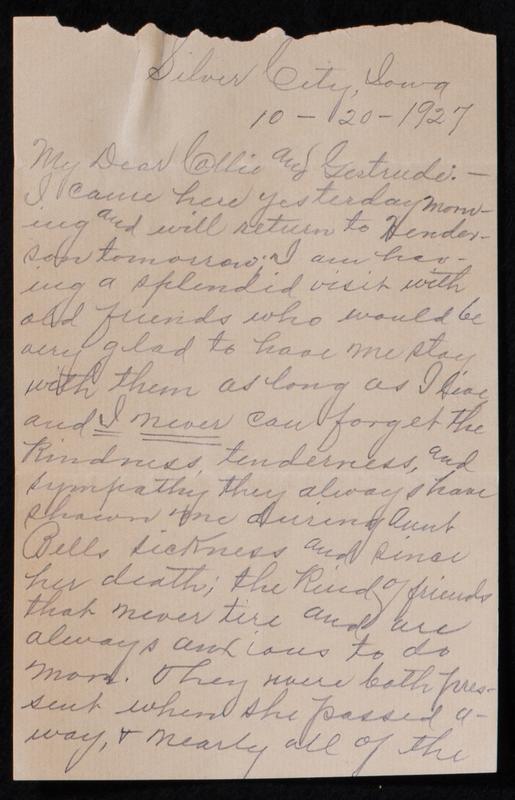 Silver City, Iowa
10-20-1927
My Dear Collie and Gertrude:—
I came here yesterday morn-
ing and will return to Hender-
son tomorrow. I am hav-
ing a splendid visit with
old friends who would be
very glad to have me stay
with them as long as I live,
and I never can forget the
kindness, tenderness, and
sympathy they always have
shown me during Aunt
Bells sickness and since
her death; the kind of friends
that never tire and are
always anxious to do
more. They were both pres-
sent when she passed a-
way, & nearly all of the